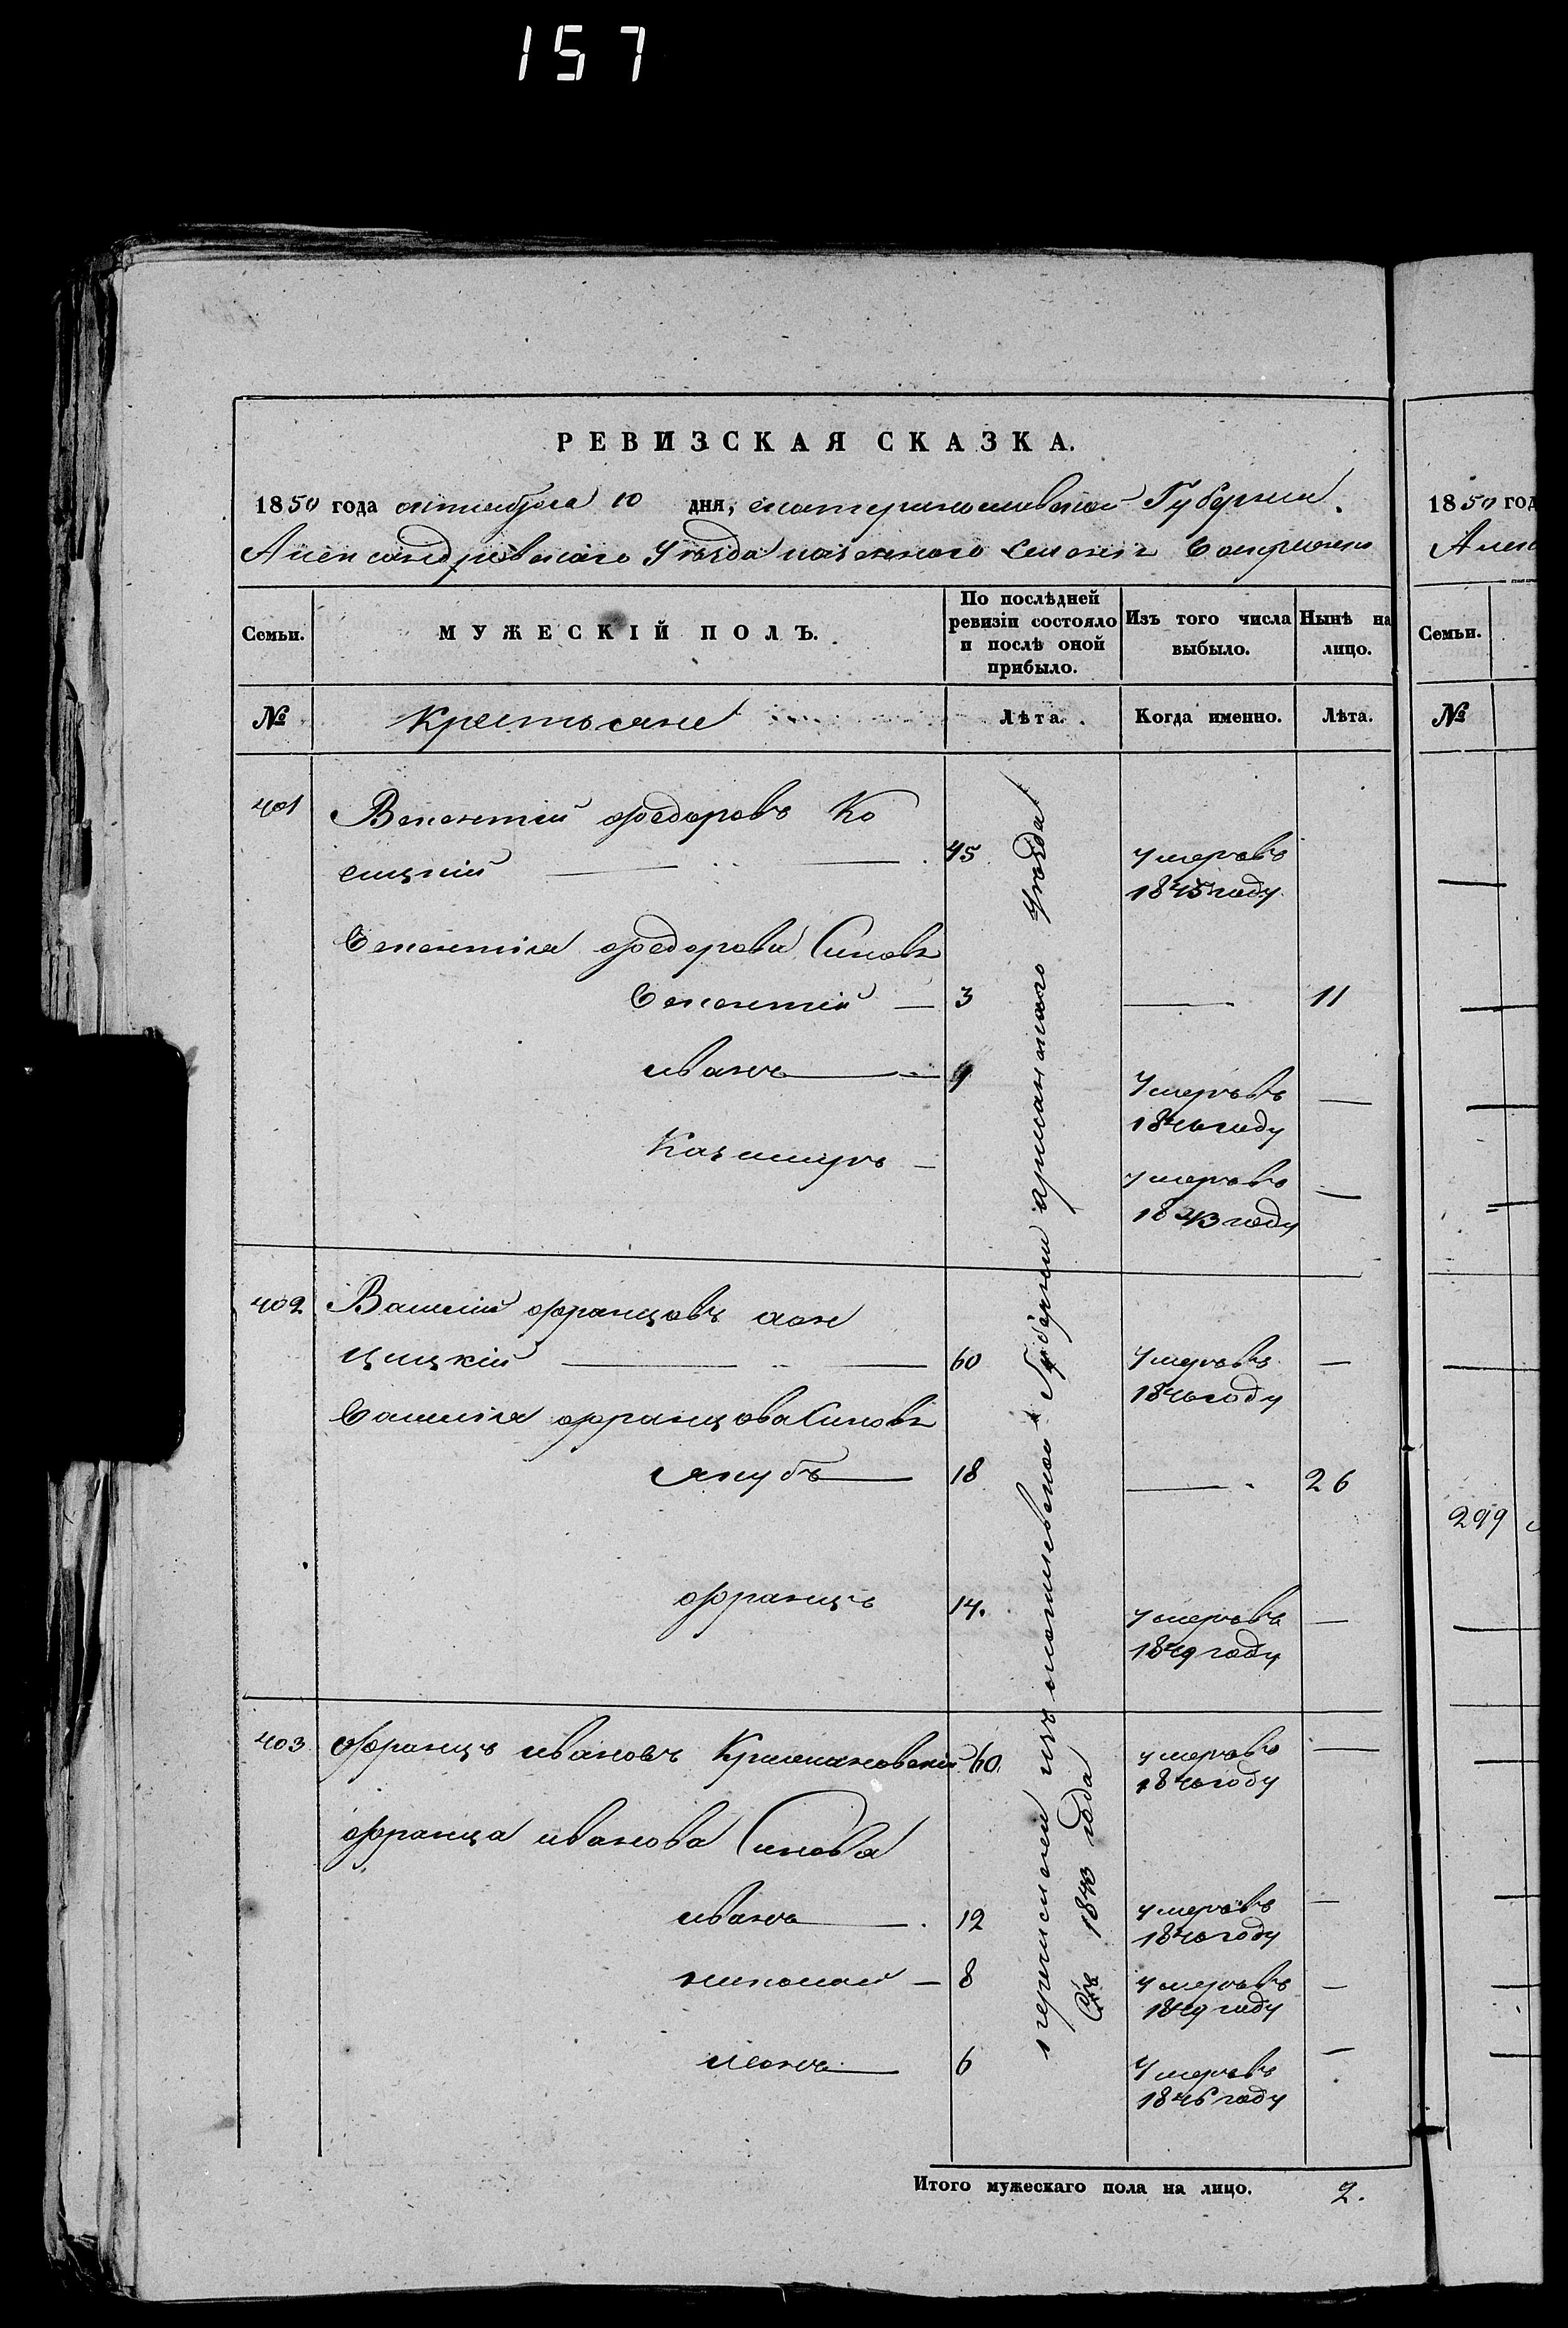 157
РЕВИЗСКАЯ СКАЗКА.
1850 года октября 10 дня, екатеринославской Губернии.
Александровскаго Уезда казенного Селения
Семьи.
МУЖЕСКІЙ ПОЛЪ.
По послѣдней ревизіи состояло и послѣ оной прибыло.
Изъ того числа выбыло.
Нынѣ на лицо.
№
Крестьяне
Лѣта.
Когда именно.
Лѣта.
401 Викентий федоровъ Ко
сицкий 45 умеръ въ
1845 году
Викентия федорова Синовя
Викентий — 3 — 11
иванъ — 9 умеръ въ —
1846 году
Казимиръ — умеръ въ —
1843 году
402 Василий францовъ
цицкій — 60 умеръ въ —
1846 году
Василия францова Синовя
якубъ — 18 — 26
францъ 14. умеръ въ —
1849 году
403 францъ ивановъ 60. умеръ въ —
1846 году
франца иванова Синовя
иванъ — 12 умеръ въ —
1846 году
николай — 8 умеръ въ —
1849 году
леонъ — 6 умеръ въ —
1846 году
перечислени изъ могилевской Губернии оршанского уезда
Съ 1843 года
Итого мужескаго пола на лицо. 2.
1850 год
Алек
Семьи.
№
299